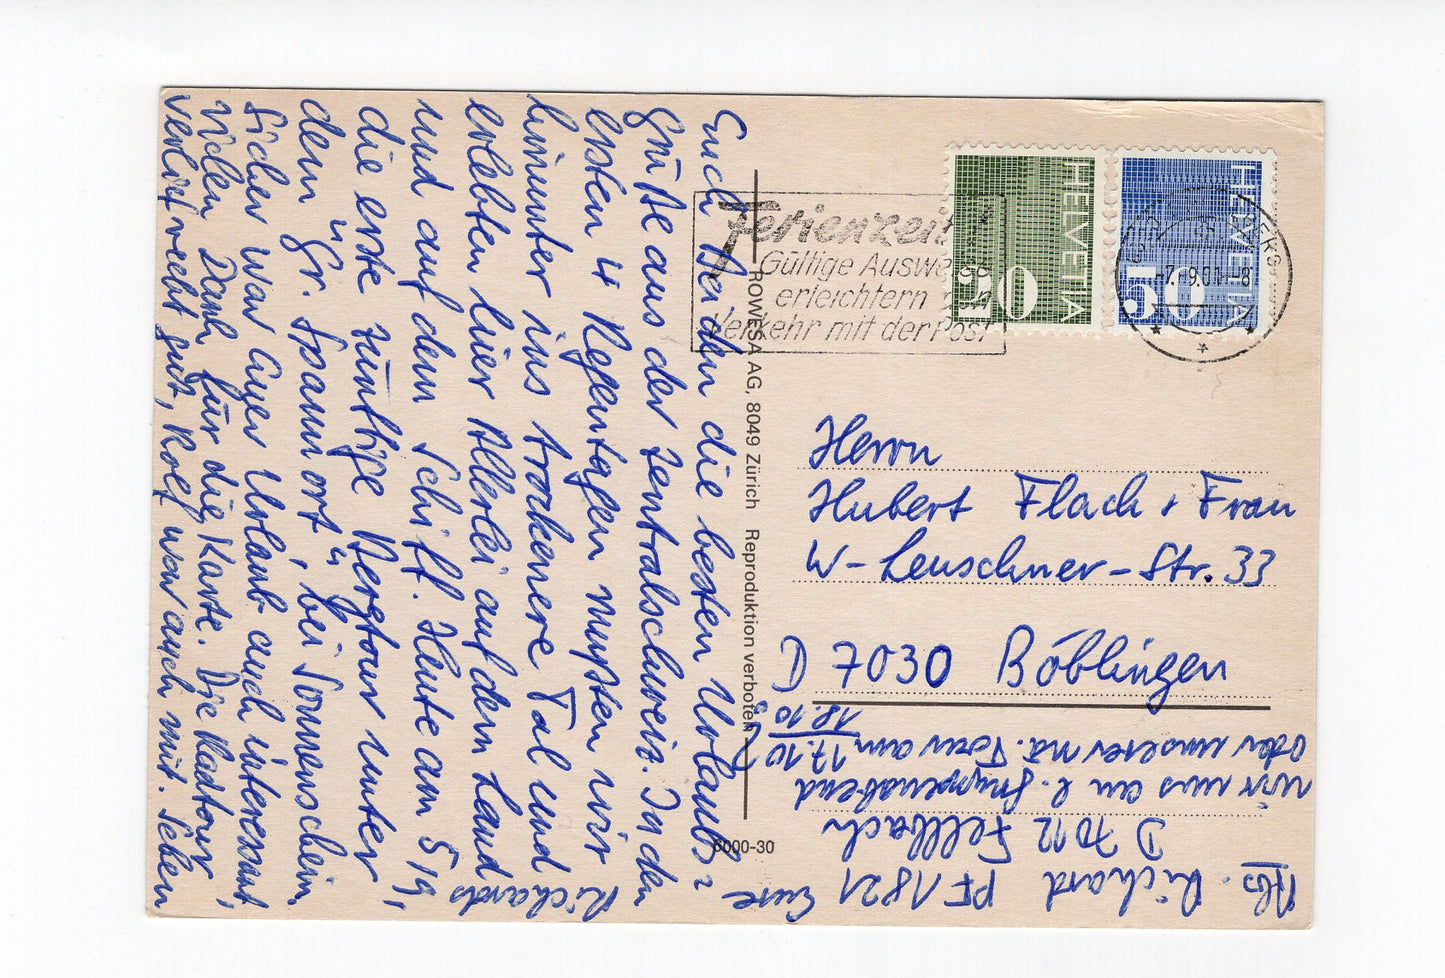 Euch Beiden die besten Urlaubs=
grüße aus der Zentralschweiz. In den
ersten 4 Regentagen mußten wir
hinunter ins trockenere Tal und
erlebten hier Allerlei auf dem Land
und auf dem Schiff. Heute am 5/9,
die erste zünftige Bergtour unter
dem "Gr. Spannort", bei Sonnenschein.
Sicher war Euer Urlaub auch interessant,
vielen Dank für die Karte. Die Radtour
verlief recht gut, Rolf war auch mit. Sehen
wir uns am l. Gruppenabend
oder unserer Tour am 17.10
18.10?
Eure
Richards
Abs. Richard PF 1821
D 7012 Fellbach
Ferienzeit
Gültige Auswe
erleichtern
Verkehr mit der Post
HELVETIA
20
HELVETIA
50
-7.-9.81-8
ROWESA AG, 8049 Zürich Reproduktion verboten
6000-30
Herrn
Hubert Flach + Frau
W-Leuschner-Str. 33
D 7030 Böblingen